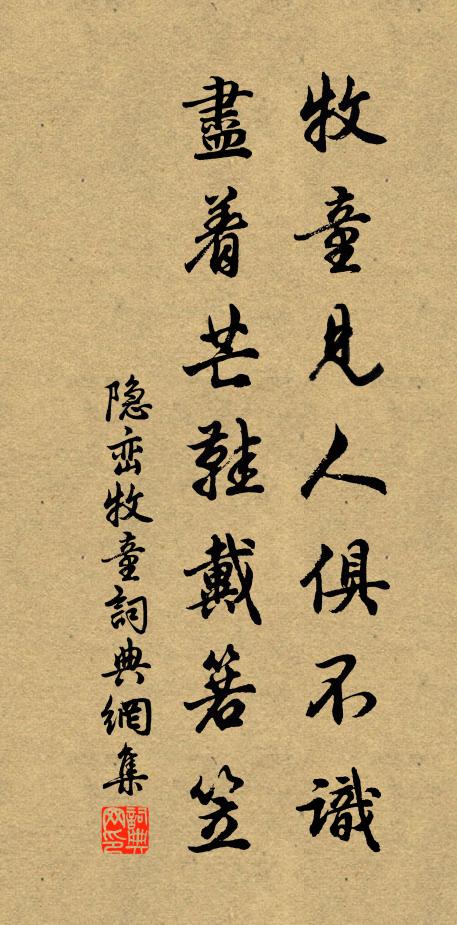 牧童見人俱不識
盡着芒鞋戴箬笠
隐巒牧童詞典網集
詞典网印